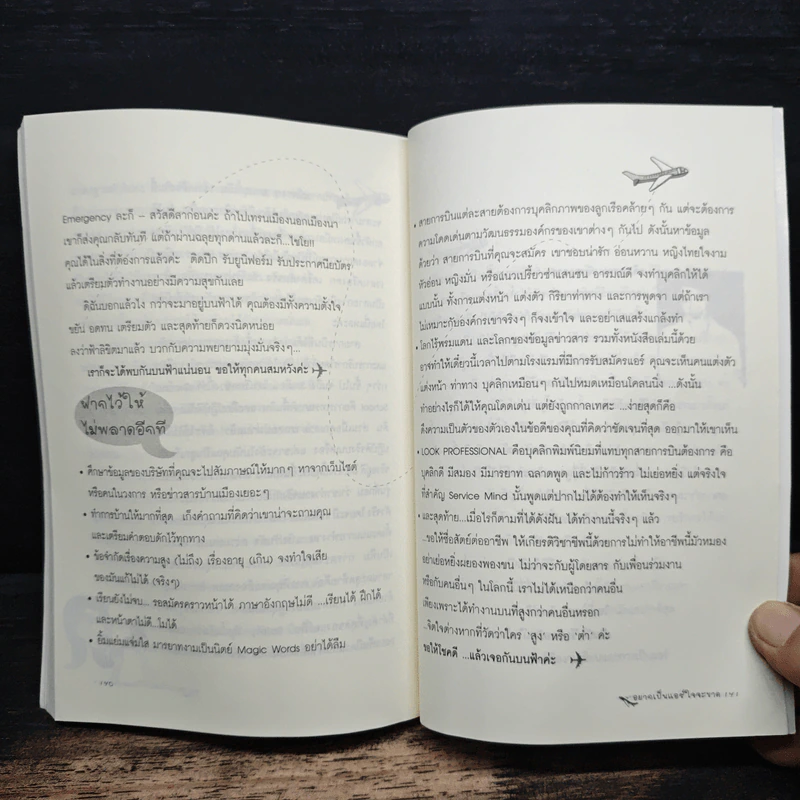 Emergency ละก็ – สวัสดีลาก่อนค่ะ ถ้าไปเทรนเมืองนอกเมืองนา
เขาก็ส่งคุณกลับทันที แต่ถ้าผ่านฉลุยทุกด่านแล้วละก็...ไชโย!!
คุณได้ในสิ่งที่ต้องการแล้วค่ะ ติดปีก รับยูนิฟอร์ม รับประกาศนียบัตร
แล้วเตรียมตัวทำงานอย่างมีความสุขกันเลย
ดิฉันบอกแล้วไง กว่าจะมาอยู่บนฟ้าได้ คุณต้องมีทั้งความตั้งใจ
ขยัน อดทน เตรียมตัว และสุดท้ายก็ดวงนิดหน่อย
ลงว่าฟ้าลิขิตมาแล้ว บวกกับความพยายามมุ่งมั่นจริงๆ...
เราก็จะได้พบกันบนฟ้าแน่นอน ขอให้ทุกคนสมหวังค่ะ
ฝากไว้ให้
ไม่พลาดอีกที
• ศึกษาข้อมูลของบริษัทที่คุณจะไปสัมภาษณ์ให้มากๆ หาจากเว็บไซต์
หรือคนในวงการ หรือข่าวสารบ้านเมืองเยอะๆ
• ทำการบ้านให้มากที่สุด เก็งคำถามที่คิดว่าเขาน่าจะถามคุณ
และเตรียมคำตอบดักไว้ทุกทาง
• ข้อจำกัดเรื่องความสูง (ไม่ถึง) เรื่องอายุ (เกิน) จงทำใจเสีย
ของมันแก้ไม่ได้ (จริงๆ)
• เรียนยังไม่จบ... รอสมัครคราวหน้าได้ ภาษาอังกฤษไม่ดี ...เรียนได้ ฝึกได้
และหน้าตาไม่ดี...ไม่ได้
• ยิ้มแย้มแจ่มใส มารยาทงามเป็นนิตย์ Magic Words อย่าได้ลืม
• สายการบินแต่ละสายต้องการบุคลิกภาพของลูกเรือคล้ายๆ กัน แต่จะต้องการ
ความโดดเด่นตามวัฒนธรรมองค์กรของเขาต่างๆ กันไป ดังนั้นหาข้อมูล
ด้วยว่า สายการบินที่คุณจะสมัคร เขาชอบน่ารัก อ่อนหวาน หญิงไทยใจงาม
หัวอ่อน หญิงมั่น หรือแนวเปรี้ยวซ่าแสนซน อารมณ์ดี จงทำบุคลิกให้ได้
แบบนั้น ทั้งการแต่งหน้า แต่งตัว กิริยาท่าทาง และการพูดจา แต่ถ้าเรา
ไม่เหมาะกับองค์กรเขาจริงๆ ก็จงเข้าใจ และอย่าเสแสร้งแกล้งทำ
• โลกไร้พรมแดน และโลกของข้อมูลข่าวสาร รวมทั้งหนังสือเล่มนี้ด้วย
อาจทำให้เดี๋ยวนี้เวลาไปตามโรงแรมที่มีการรับสมัครแอร์ คุณจะเห็นคนแต่งตัว
แต่งหน้า ท่าทาง บุคลิกเหมือนๆ กันไปหมดเหมือนโคลนนิ่ง ...ดังนั้น
ทำอย่างไรก็ได้ให้คุณโดดเด่น แต่ยังถูกกาลเทศะ ...ง่ายสุดก็คือ
ดึงความเป็นตัวของตัวเองในข้อดีของคุณที่คิดว่าชัดเจนที่สุด ออกมาให้เขาเห็น
• LOOK PROFESSIONAL คือบุคลิกพิมพ์นิยมที่แทบทุกสายการบินต้องการ คือ
บุคลิกดี มีสมอง มีมารยาท ฉลาดพูด และไม่ก้าวร้าว ไม่เย่อหยิ่ง แต่จริงใจ
ที่สำคัญ Service Mind นั้นพูดแต่ปากไม่ได้ต้องทำให้เห็นจริงๆ
• และสุดท้าย...เมื่อไรก็ตามที่ได้ดังฝัน ได้ทำงานนี้จริงๆ แล้ว
...ขอให้ซื่อสัตย์ต่ออาชีพ ให้เกียรติวิชาชีพนี้ด้วยการไม่ทำให้อาชีพนี้มัวหมอง
อย่าเย่อหยิ่งผยองพองขน ไม่ว่าจะกับผู้โดยสาร กับเพื่อนร่วมงาน
หรือกับคนอื่นๆ ในโลกนี้ เราไม่ได้เหนือกว่าคนอื่น
เพียงเพราะได้ทำงานบนที่สูงกว่าคนอื่นหรอก
...จิตใจต่างหากที่วัดว่าใคร 'สูง' หรือ 'ต่ำ' ค่ะ
ขอให้โชคดี ...แล้วเจอกันบนฟ้าค่ะ
อยากเป็นแอร์ ใจจะขาด